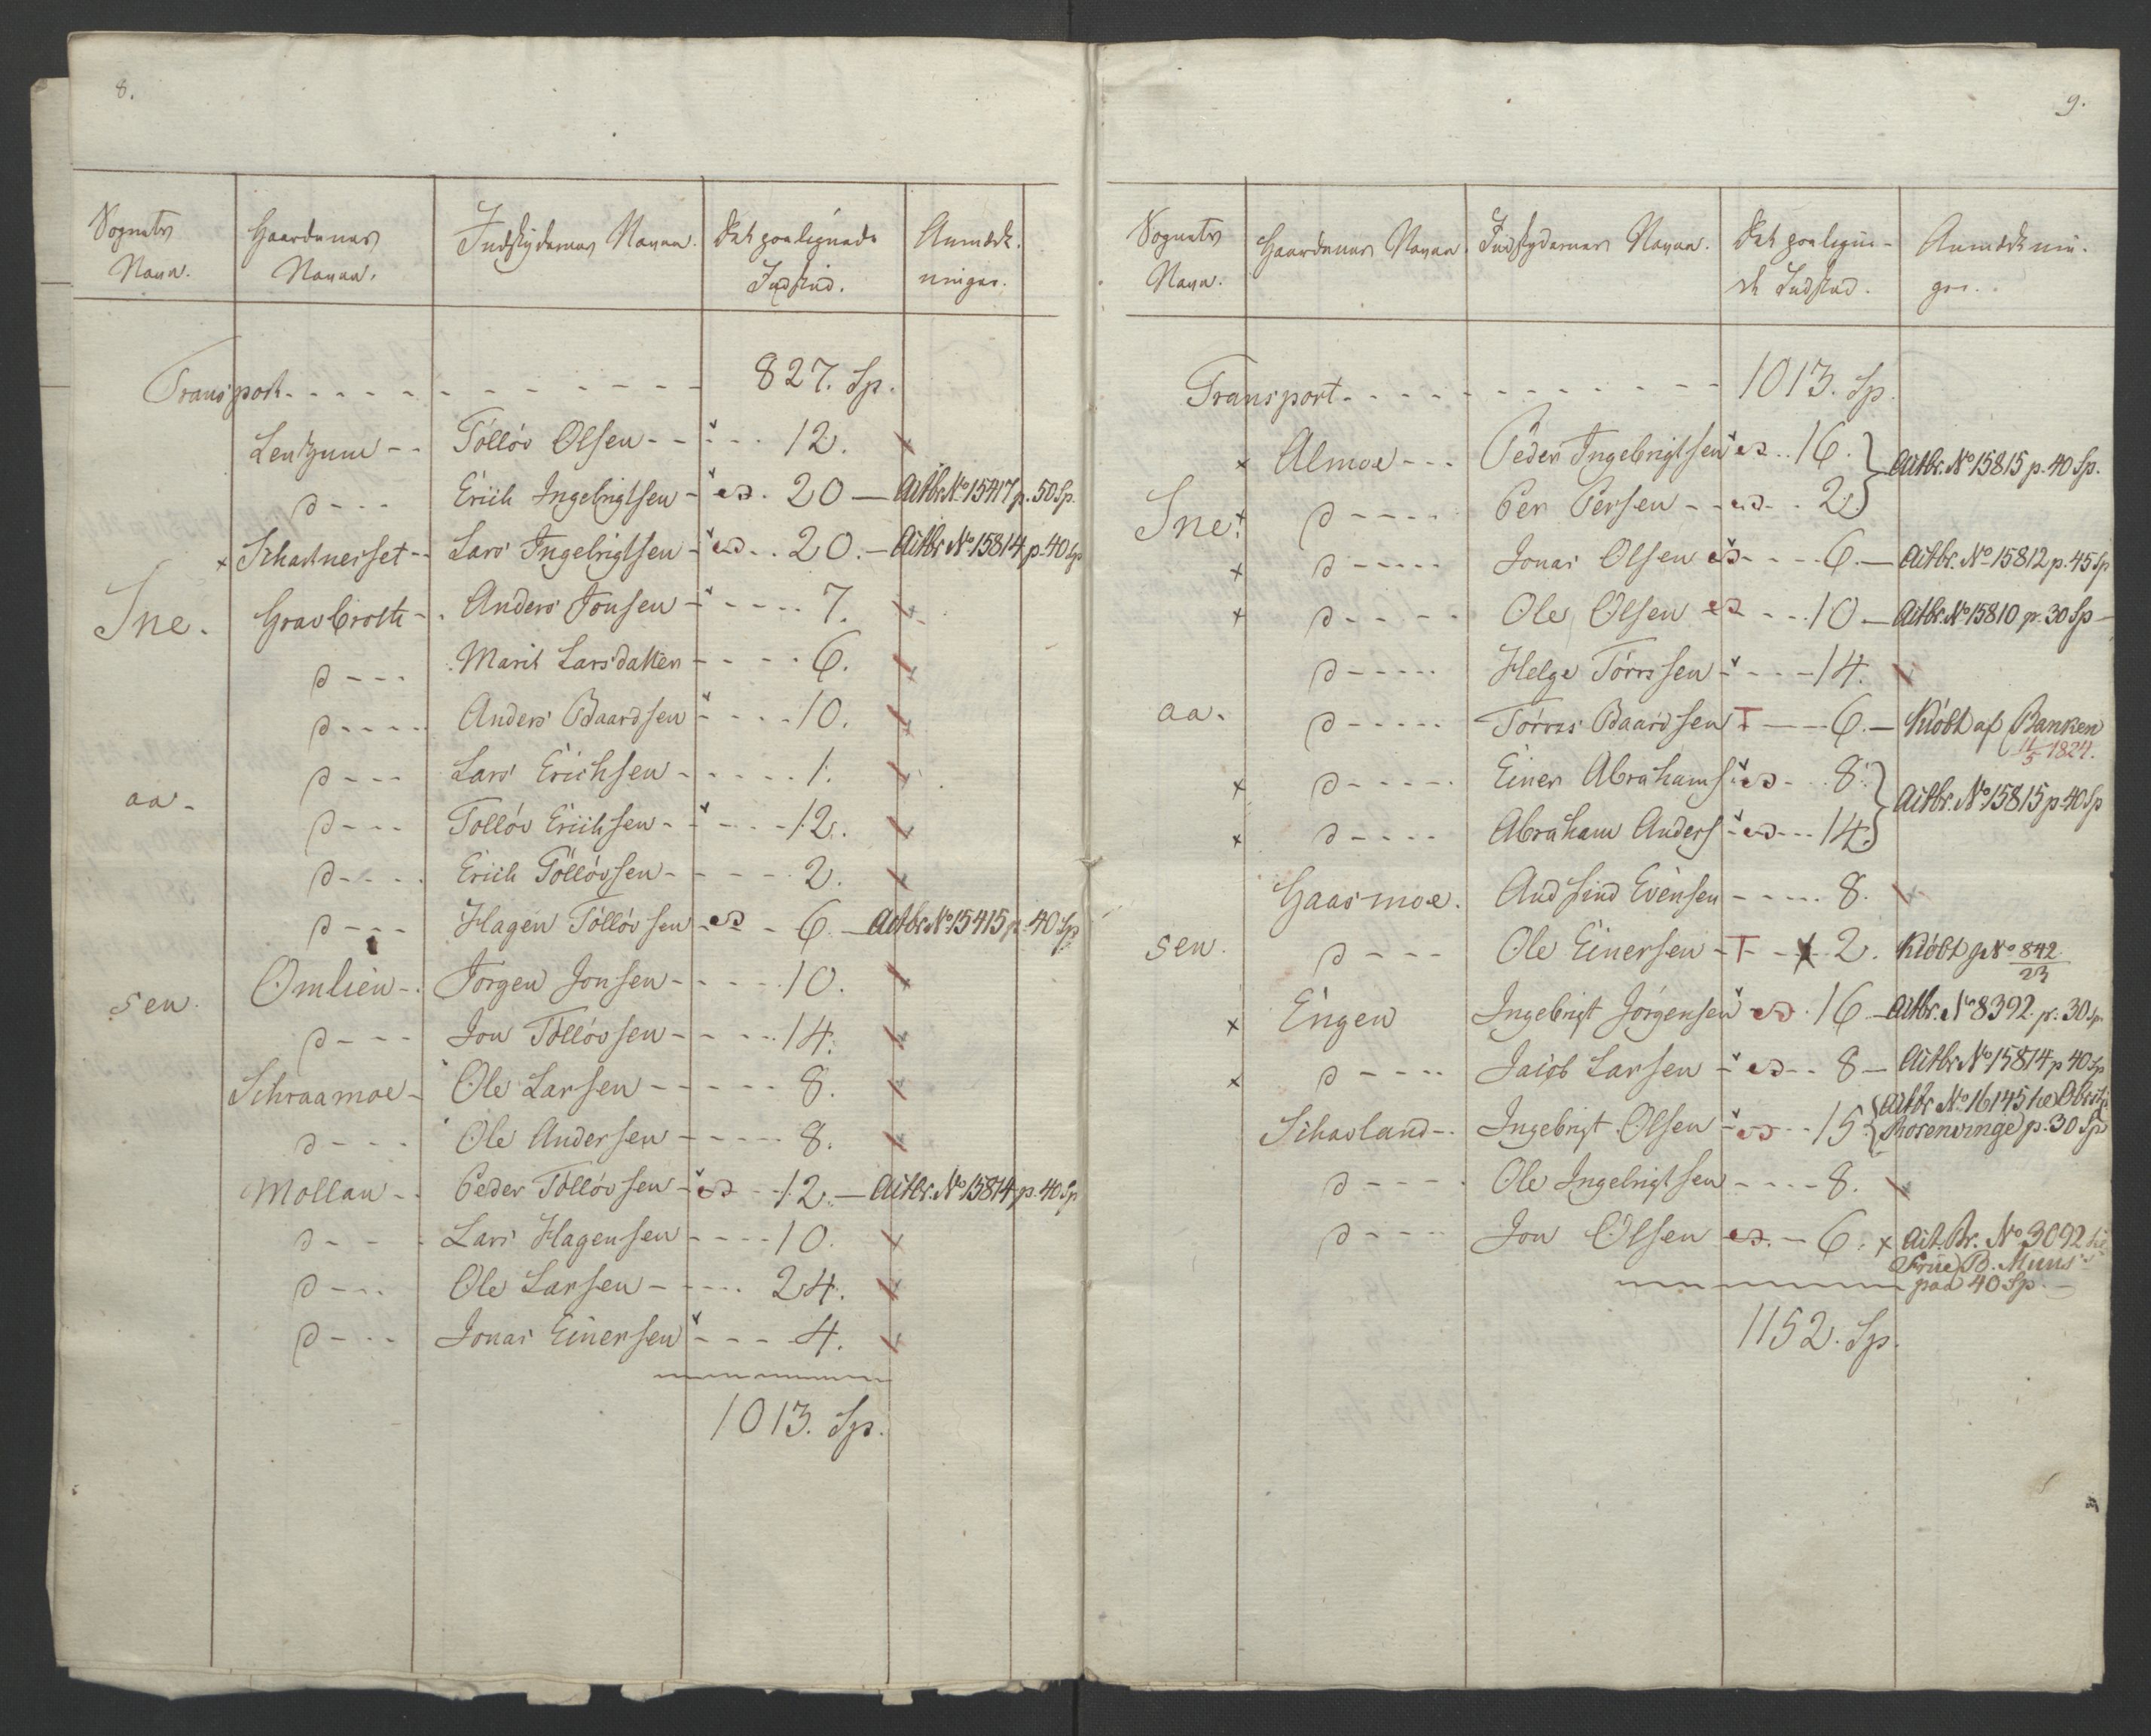 8.
Sognets Navn. Gaardenes Navne. Indskydernes Navne. Det paalignede Indskud. Anmærkninger.
Transport - - - - - - - - - - - 827. Sp.
Tólløv Olsen - - - - 12.
d - - - Erich Ingebrigtsen - 20 - Actbr. No 15417 p. 50 Sp.
× Lars Ingebrigtsen - 20. - Actbr. No 15814 p. 40 Sp
Sne. Anders Jonsen - - - - 7.
d - - - Marit Larsdatter - - - - 6.
d - - - - Anders Baardsen - - - - 10.
d - - - Lars Erichsen - - - - - 1.
aa -
d - - - Tolløv Erichsen - - - - - 12.
d - - - - Erich Tólløvsen - - - - - 2.
d - - - Hagen Tólløvsen - - 6. - Actbr. No 15415 p. 40 Sp
sen. Omlien - . Jørgen Jonsen - - - - - 10.
d - - - Jon Tólløvsen - - - - 14.
Schraamoe - Ole Larsen - - - - - 8.
d - - - - Ole Andersen - - - - - 8.
Mollan - - Peder Tólløvsen - - - 12. - Actbr. No 15814 p. 40 Sp
d - - - - Lars Hagensen - - - - 10.
d - - - Ole Larsen - - - - 24.
d - - - Jonas Einersen - - - 4.
1013. Sp.
9.
Sognets Navn. Gaardenes Navne. Indskydernes Navne. Det paalignede Indskud. Anmærkninger.
Transport - - - - - - - - - - - 1013. Sp.
× Almoe - - - Peder Ingebrigtsen - 16. } Actbr. No 15815 p. 40 Sp.
Sne. × d - - - - Per Persen - - - 2. }
× d - - - - - Jonas Olsen - - - - 6. - Actbr. No 15812 p. 45 Sp
× d - - - - - Ole Olsen - - - 10 - Actbr. No 15810 p. 30 Sp -
d - - - - - Helge Tórrssen - - - - 14.
aa. d - - - - - Tórris Baardsen T - - - 6. - Kiöbt af Banken
11/5 1824.
× d - - - - - Einer Abrahams - - 8. } Actbr. No 15815 p. 40 Sp
× d - - - - Abraham Anders - - - - 14. }
Gaasmoe. Andfind Evensen - - - - 8.
sen. d - - - Ole Einersen - T - - 2. Kiöbt p No 842/23
× Engen Ingebrigt Jørgensen - 16 - Actbr. No 8392. p. 30 Sp
× d - - - - Jacob Larsen - - - 8 - Actbr. No 15814 p 40 Sp
Schavland - . Ingebrigt Olsen - - - 15. { Actbr No 16145
Rosenvinge p. 30 Sp
d - - - - Ole Ingebrigtsen - - - - 8.
d - - - - Jon Olsen - - 6. × Act. Br. No 3092
Frue B. Muus's
paa 40 Sp. -
1152. Sp.